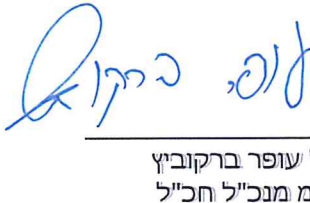 עופר ברקוביץ
עופר ברקוביץ
מנכ"ל חכ"ל